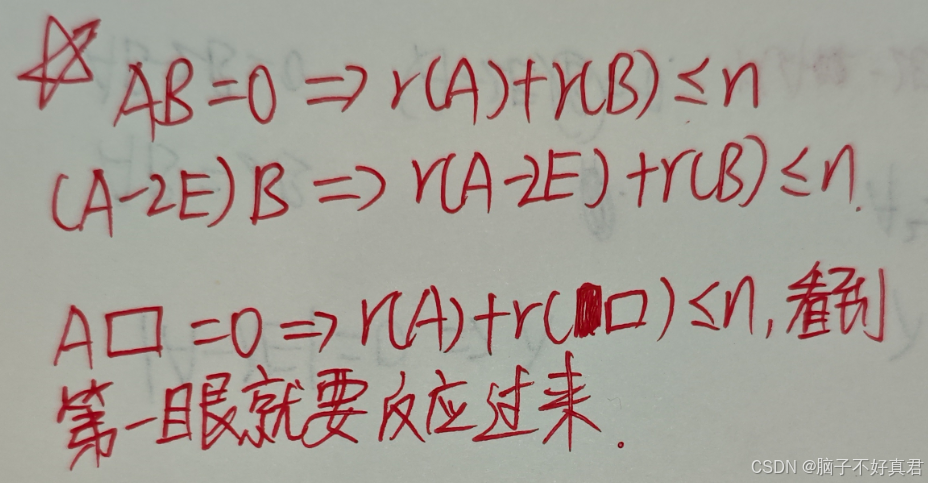 ☆ AB=0 ⇒ r(A)+r(B)≤n
(A-2E)B ⇒ r(A-2E)+r(B)≤n.
A□=0 ⇒ r(A)+r(□)≤n,看到
第一眼就要反应过来.
CSDN @脑子不好真君